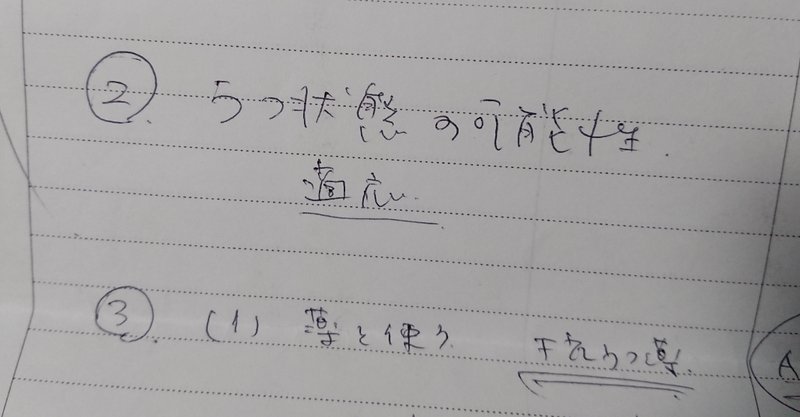 ② うつ状態の可能性.
適応.
③ (1) 薬を使う 抗うつ薬.
A